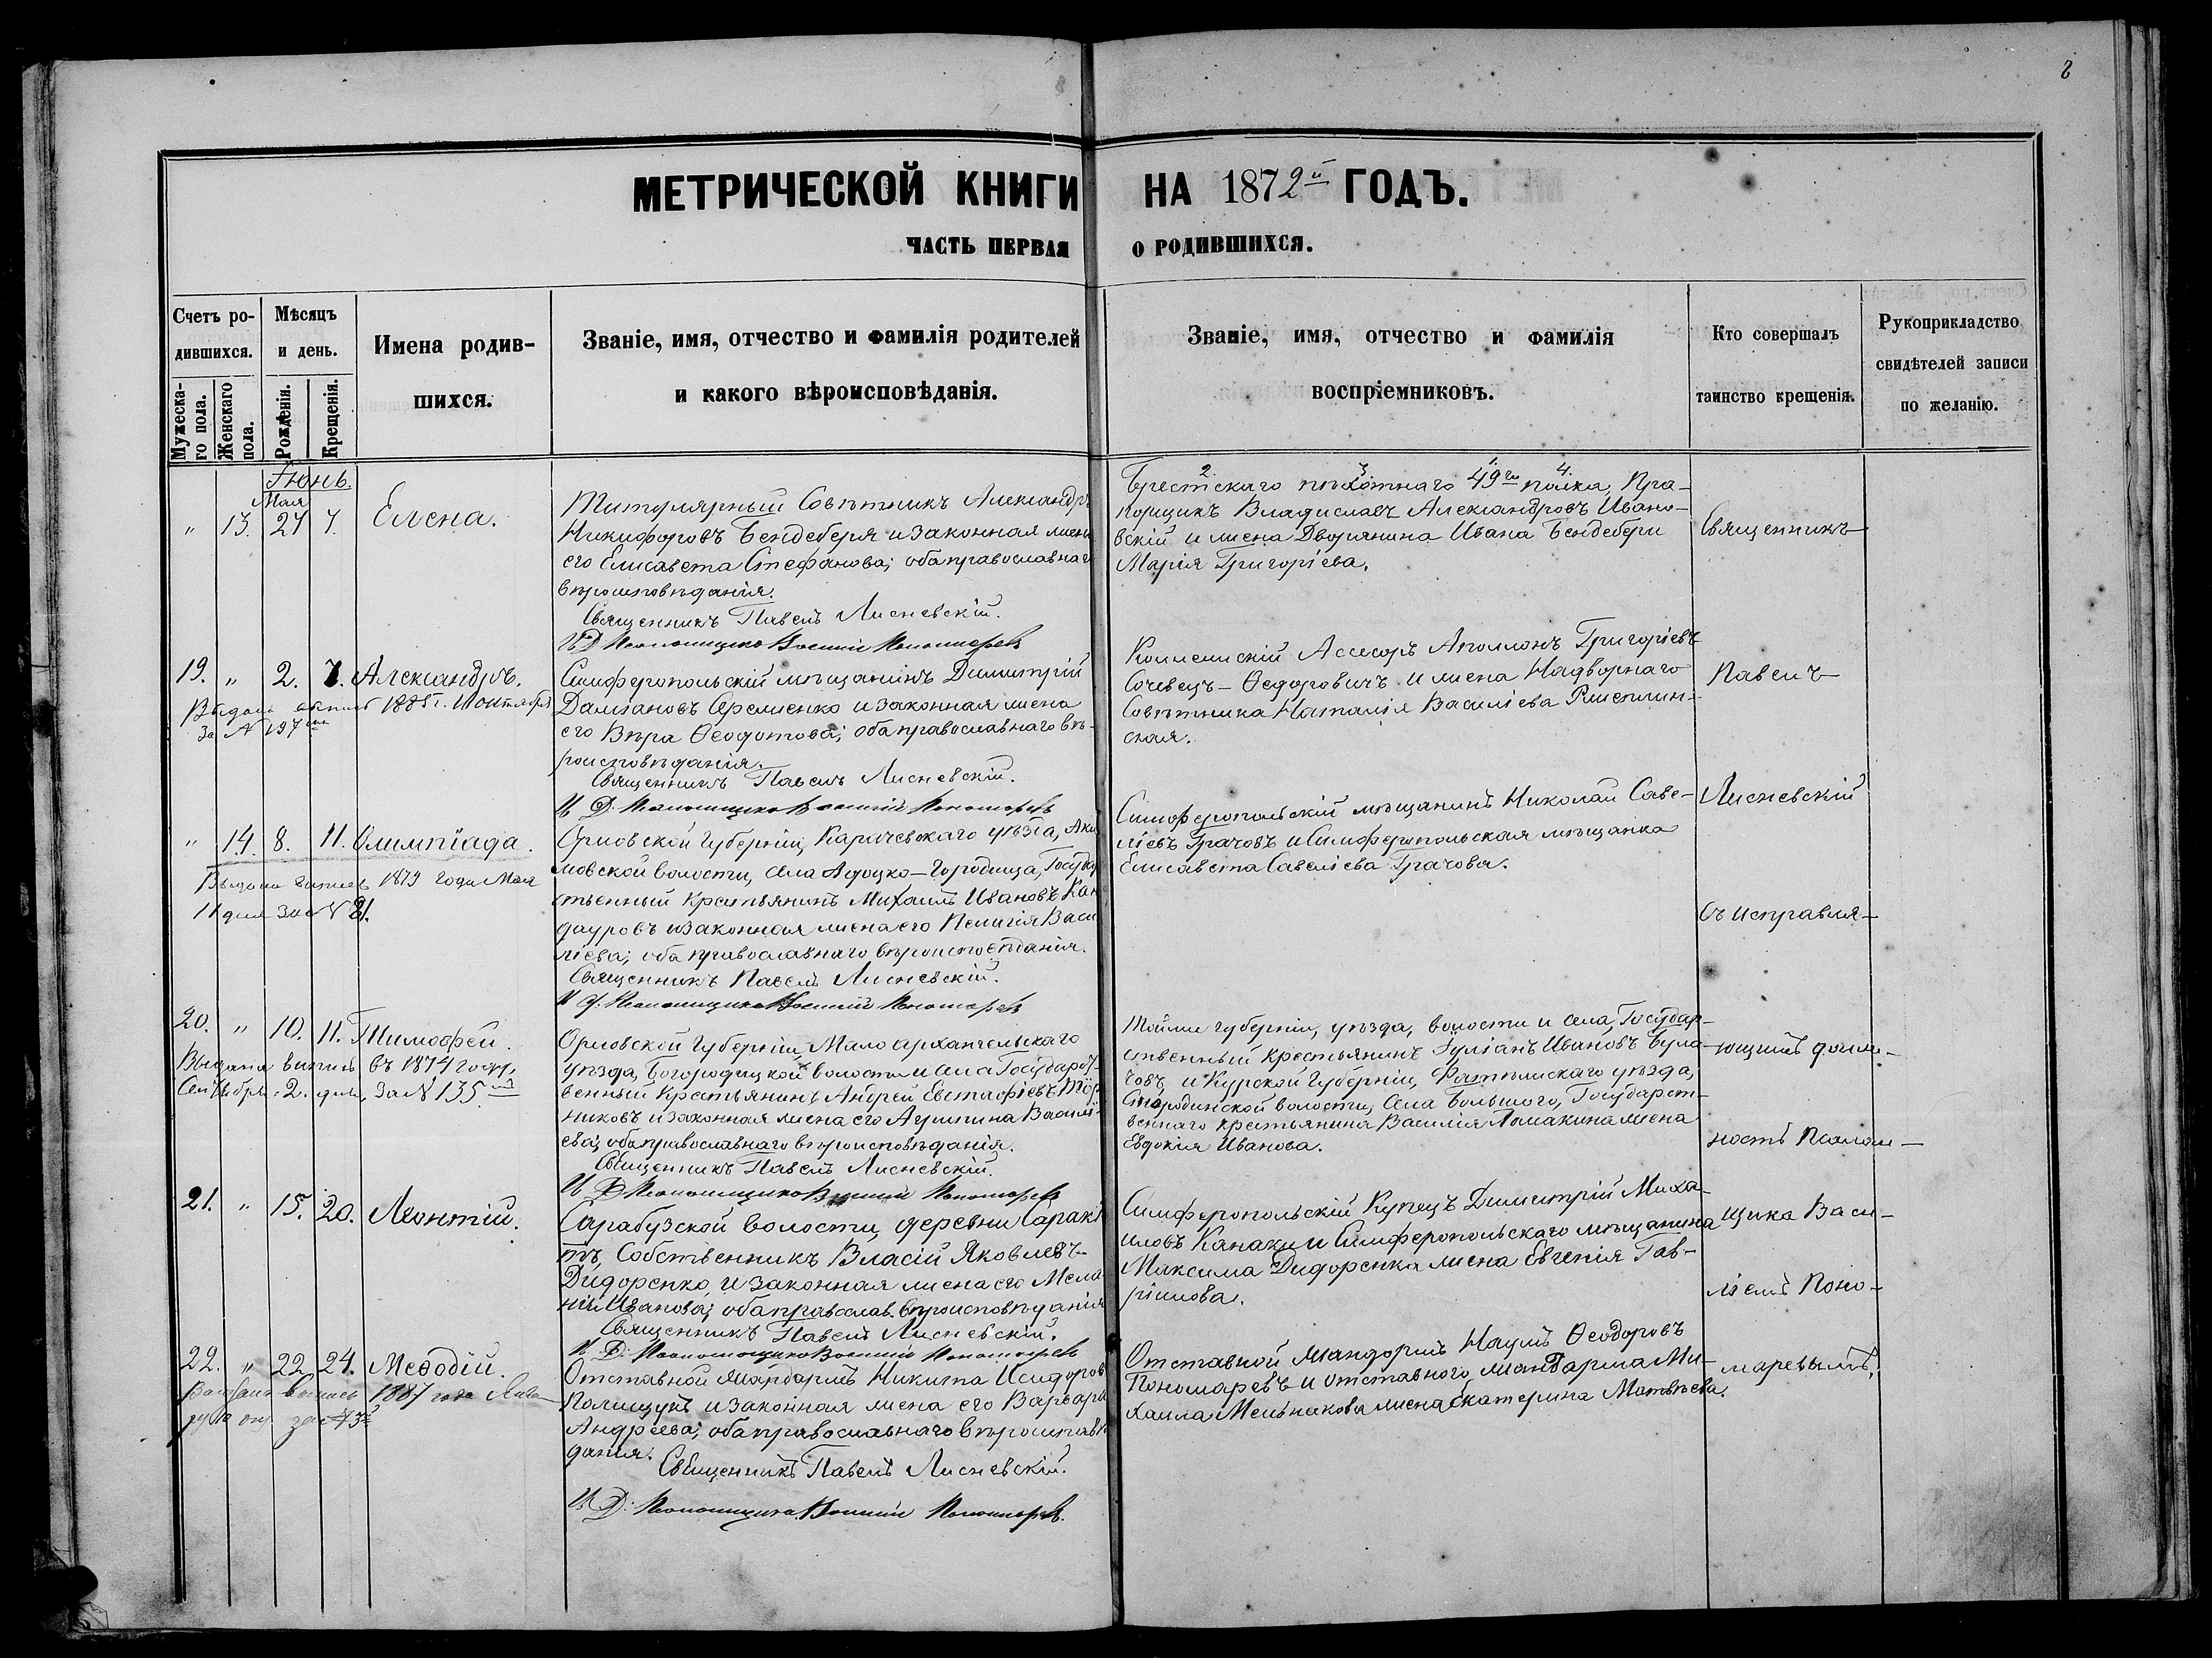 8
МЕТРИЧЕСКОЙ КНИГИ НА 1872й ГОДЪ.
ЧАСТЬ ПЕРВАЯ О РОДИВШИХСЯ.
Счетъ ро-
дившихся.
Мужеска-
го пола.
Женскаго
пола.
Мѣсяцъ
и день.
Рожденія.
Крещенія.
Имена родив-
шихся.
Званіе, имя, отчество и фамилія родителей
и какого вѣроисповѣданія.
Званіе, имя, отчество и фамилія
воспріемниковъ.
Кто совершалъ
таинство крещенія.
Рукоприкладство
свидѣтелей записи
по желанію.
Іюнь.
Мая
" 13. 27 4. Елена.
Титулярный Совѣтникъ Александръ
Никифоровъ Бендеберя и законная жена
его Елисавета Стефанова; оба православнаго
вѣроисповѣданія.
Священникъ Павелъ Лисневскій.
И. Д. Псаломщика Василій Пономаревъ
2. 3. 1. 4.
Брестскаго пѣхотнаго 49го полка, Пра-
порщикъ Владиславъ Александровъ Ивано-
вскій и жена Дворянина Ивана Бендебери
Марія Григоріева.
19. " 2. 7. Александръ.
Выдана выпись 1885 г. Октября
за № 197мъ
Симферопольскій мѣщанинъ Димитрій
Даміановъ Яременко и законная жена
его Вѣра Ѳеодотова; оба православнаго вѣ-
роисповѣданія.
Священникъ Павелъ Лисневскій.
И. Д. Псаломщика Василій Пономаревъ
Коллежскій Ассесоръ Аполлонъ Григоріевъ
Сочевецъ-Ѳедоровичъ и жена Надворнаго
Совѣтника Наталія Василіева
ская.
" 14. 8. 11. Олимпіада.
Выдана выпись 1879 года Мая
11 дня за № 81.
Орловской Губерніи, Карачевскаго уѣзда,
мовской волости, села Адоцко-Городища, Государ
ственный Крестьянинъ Михаилъ Ивановъ Кан
дауровъ и законная жена его Пелагія Васи
ліева; оба православнаго вѣроисповѣданія.
Священникъ Павелъ Лисневскій.
И. д. Псаломщика Василій Пономаревъ
Симферопольскій мѣщанинъ Николай Саве-
ліевъ Грачовъ и Симферопольская мѣщанка
Елисавета Савеліева Грачова.
20. " 10. 11. Тимоѳей.
Выдана выпись въ 1874 году,
Сентября 2. дня, за № 135мъ
Орловской Губерніи, Мало архангельскаго
уѣзда, Богородицкой волости и села Государст
венный Крестьянинъ Андрей Евстафіевъ
никовъ и законная жена его Акилина Василі
ева; оба православнаго вѣроисповѣданія.
Священникъ Павелъ Лисневскій.
И. Д. Псаломщика Василій Пономаревъ
Тойже губерніи, уѣзда, волости и села, Государ-
ственный крестьянинъ Іуліанъ Ивановъ Була-
човъ и Курской Губерніи, Фатежскаго уѣзда,
волости, села Большого, Государст-
веннаго крестьянина Василія Ломакина жена
Евдокія Иванова.
21. " 15. 20. Леонтій.
Сарабузской волости, деревни Саракі
тъ, Собственникъ Власій Яковлевъ
Дидоренко и законная жена его Мела
нія Иванова; оба православ. вѣроисповѣданія
Священникъ Павелъ Лисневскій.
И. Д. Псаломщика Василій Пономаревъ
Симферопольскій Купецъ Димитрій Миха-
иловъ Канаки и Симферопольскаго мѣщанина
Максима Дидоренка жена Евгенія Гав-
ріилова.
22. " 22. 24. Меѳодій.
выпись 1887 года
за №
Отставной жандармъ Никита Исидоров
Полищукъ и законная жена его Варвара
Андреева; оба православнаго вѣроисповѣ
данія.
Священникъ Павелъ Лисневскій.
И. Д. Псаломщика Василій Пономаревъ.
Отставной жандармъ Наумъ Ѳеодоровъ
Пономаревъ и отставного жандарма Ми-
хаила Мельникова жена Екатерина Матвѣева.
Священникъ
Павелъ
Лисневскій
съ исправля-
ющимъ долж-
ность Псалом-
щика Васи-
ліемъ Поно-
маревымъ.